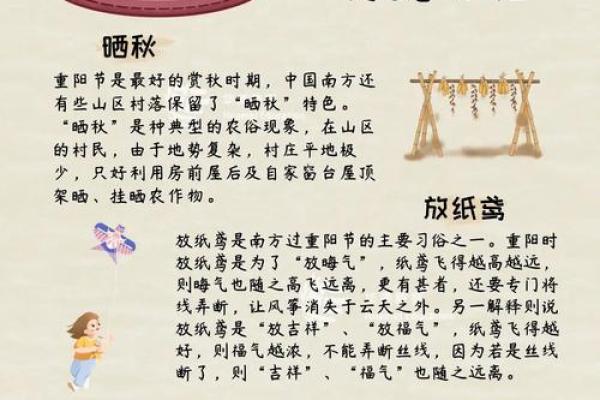 晒秋
重阳节是最好的赏秋时期，中国南方还
有些山区村落保留了“晒秋”特色。
“晒秋”是种典型的农俗现象，在山区
的村民，由于地势复杂，村庄平地极
少，只好利用房前屋后及自家窗台屋顶
架晒、挂晒农作物。
放纸鸢
放纸鸢是南方过重阳节的主要习俗之一。重阳时
放纸鸢是为了“放晦气”，纸鸢飞得越高越远，
则晦气也随之高飞远离，更有甚者，还要专门将
线弄断，让风筝消失于云天之外。另一解释则说
放纸鸢是“放吉祥”、“放福气”，纸鸢飞得越
好，则福气越浓，不能弄断丝线，因为若是丝线
断了，则“吉祥”、“福气”也随之远离。